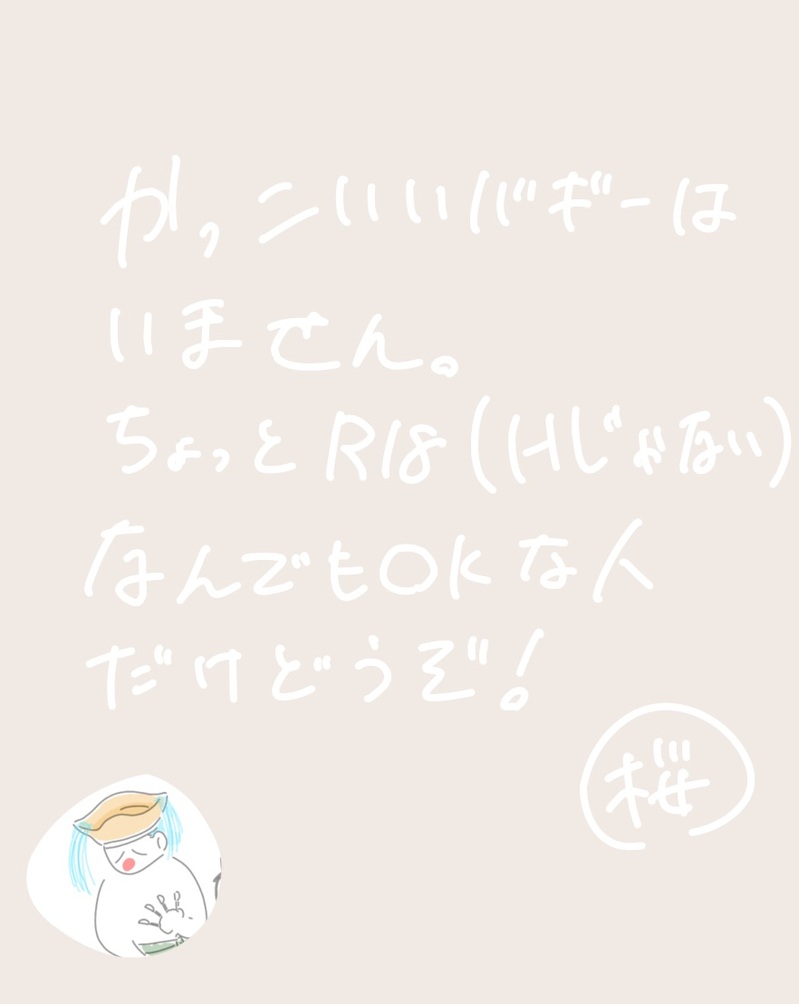 かっこいいバギーは
いません。
ちょっとR18(Hじゃない)
なんでもOKな人
だけどうぞ!
桜